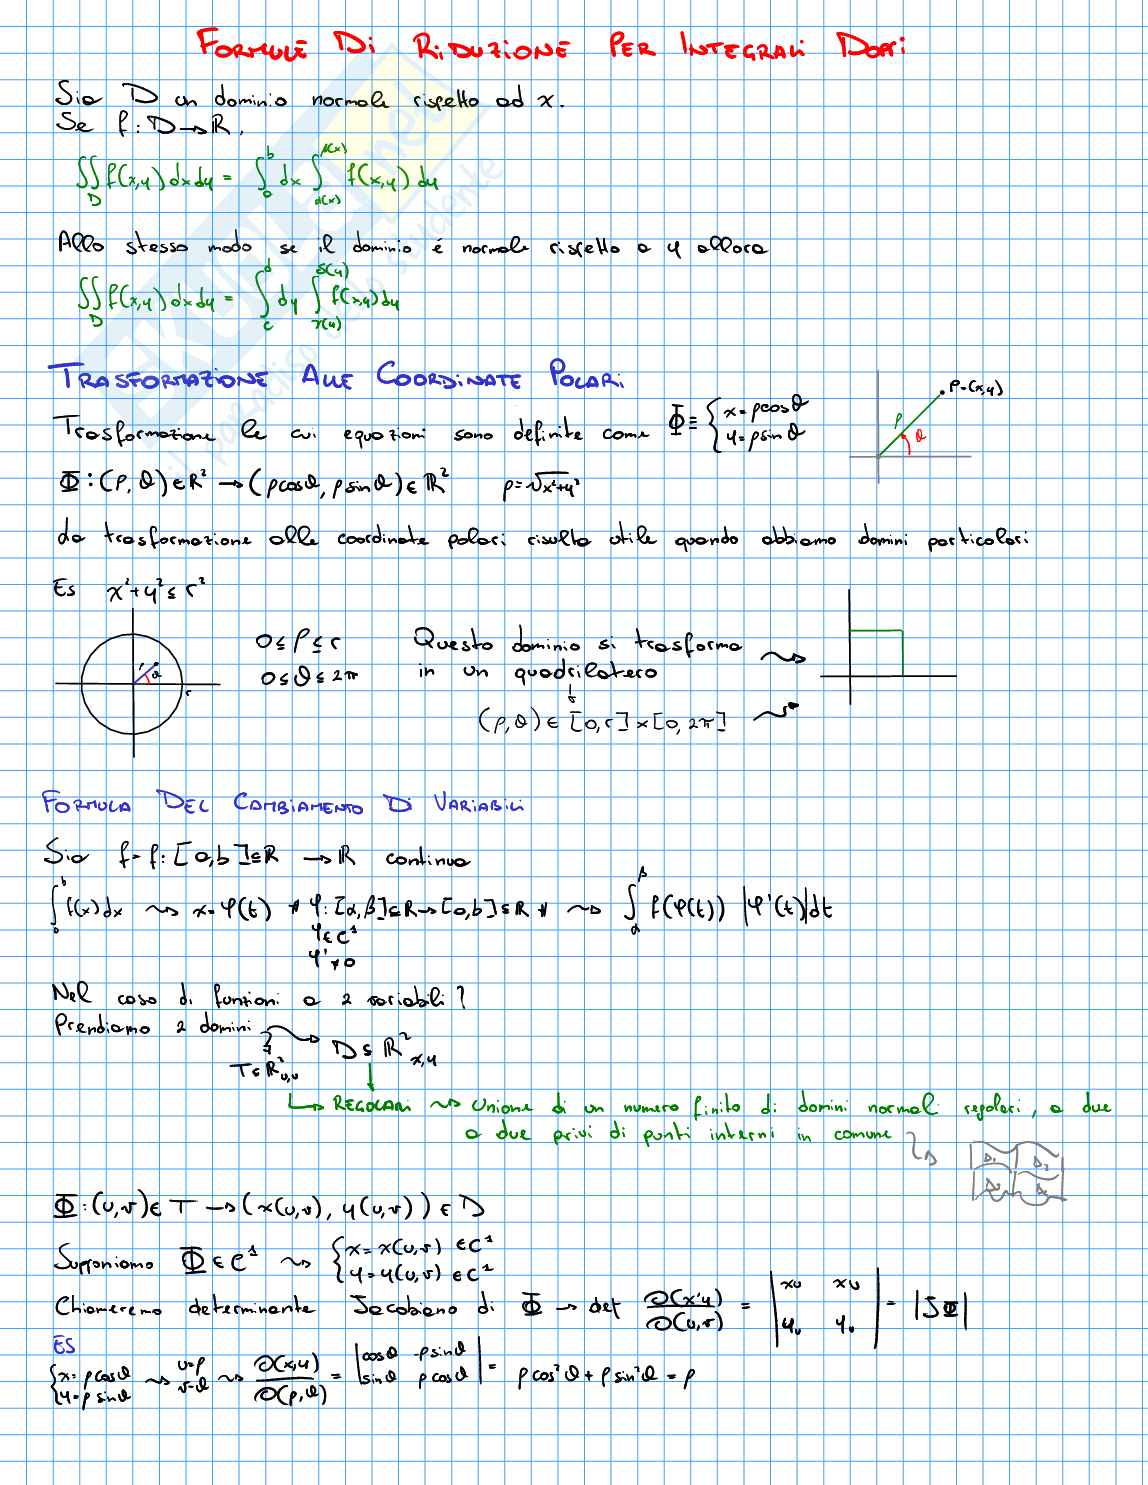 FORMULE DI RIDUZIONE PER INTEGRALI DOPPI
Sia D un dominio normale rispetto ad x.
Se f: D → ℝ,
∬_D f(x,y) dxdy = ∫_a^b dx ∫_{α(x)}^{β(x)} f(x,y) dy
Allo stesso modo se il dominio é normale rispetto a y allora
∬_D f(x,y) dxdy = ∫_c^d dy ∫_{γ(y)}^{δ(y)} f(x,y) dy
TRASFORMAZIONE ALLE COORDINATE POLARI
P=(x,y)
ρ
θ
Trasformazione le cui equazioni sono definite come Φ ≡ { x = ρcosθ
y = ρsinθ
Φ: (ρ, θ) ∈ ℝ² → (ρcosθ, ρsinθ) ∈ ℝ² ρ = √x²+y²
La trasformazione alle coordinate polari risulta utile quando abbiamo domini particolari
Es x²+y² ≤ r²
0 ≤ ρ ≤ r Questo dominio si trasforma
0 ≤ θ ≤ 2π in un quadrilatero
r
(ρ, θ) ∈ [0, r] × [0, 2π]
FORMULA DEL CAMBIAMENTO DI VARIABILI
Sia f = f: [a,b] ⊆ ℝ → ℝ continua
∫_a^b f(x) dx ⇝ x = φ(t) * φ: [α, β] ⊆ ℝ → [a,b] ⊆ ℝ * ⇝ ∫_α^β f(φ(t)) |φ'(t)| dt
φ ∈ C¹
φ' ≠ 0
Nel caso di funzioni a 2 variabili?
Prendiamo 2 domini
T ⊆ ℝ²_{u,v} D ⊆ ℝ²_{x,y}
↳ REGOLARI ⇝ Unione di un numero finito di domini normali regolari, a due
a due privi di punti interni in comune
D₁ D₂
Φ: (u,v) ∈ T → (x(u,v), y(u,v)) ∈ D
Supponiamo Φ ∈ C¹ ⇝ { x = x(u,v) ∈ C¹
y = y(u,v) ∈ C¹
Chiameremo determinante Jacobiano di Φ → det ∂(x,y)/∂(u,v) = | xu xv ; yu yv | = |JΦ|
ES
{ x = ρcosθ ⇝ u=ρ ⇝ ∂(x,y)/∂(ρ,θ) = | cosθ -ρsinθ ; sinθ ρcosθ | = ρcos²θ + ρsin²θ = ρ
y = ρsinθ v=θ